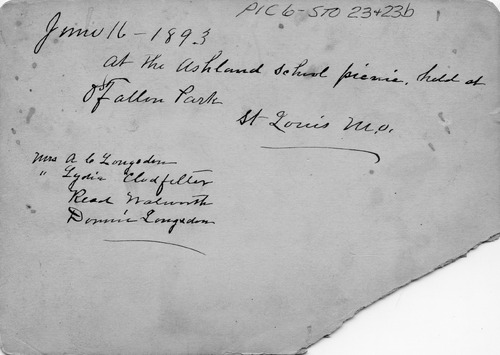 PIC6-STO 23+23b
June 16 - 1893
at the Ashland School picnic, held at
O'Fallon Park
St Louis M.o.
Mrs A C Longsdon
" Lydia Clodfelter
Read Walworth
Donnie Longsdon